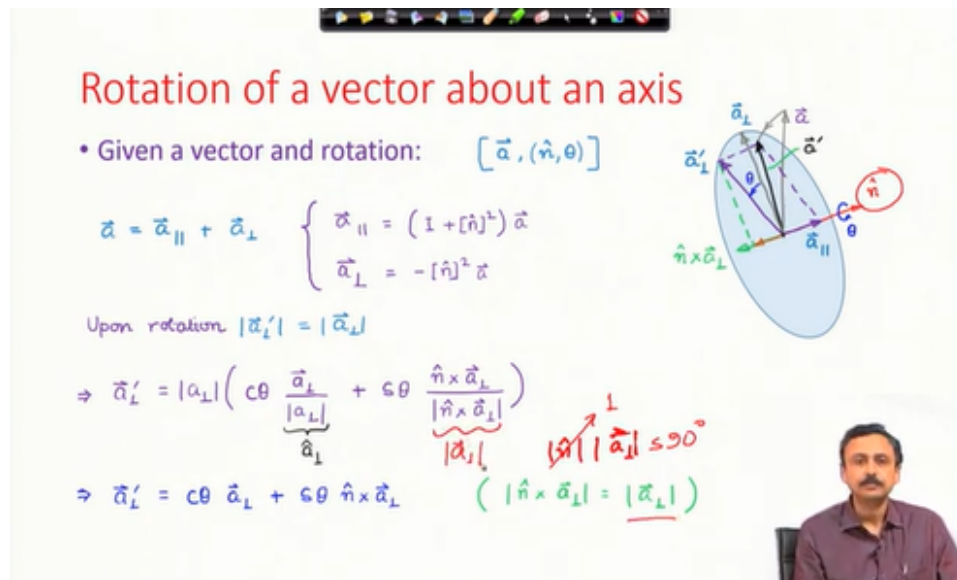 Rotation of a vector about an axis
• Given a vector and rotation: [a⃗, (n̂, θ)]
a⃗ = a⃗∥ + a⃗⊥
{ a⃗∥ = (I + [n̂]²) a⃗
a⃗⊥ = -[n̂]² a⃗
Upon rotation |a⃗⊥′| = |a⃗⊥|
⇒ a⃗⊥′ = |a⊥| ( cθ a⃗⊥/|a⊥| + sθ n̂×a⃗⊥/|n̂×a⃗⊥| )
â⊥
|a⃗⊥|
|n̂| |a⃗⊥| s90°
1
⇒ a⃗⊥′ = cθ a⃗⊥ + sθ n̂×a⃗⊥ ( |n̂×a⃗⊥| = |a⃗⊥| )
a⃗⊥
a⃗
a⃗′
a⃗⊥′
θ
n̂
θ
a⃗∥
n̂×a⃗⊥